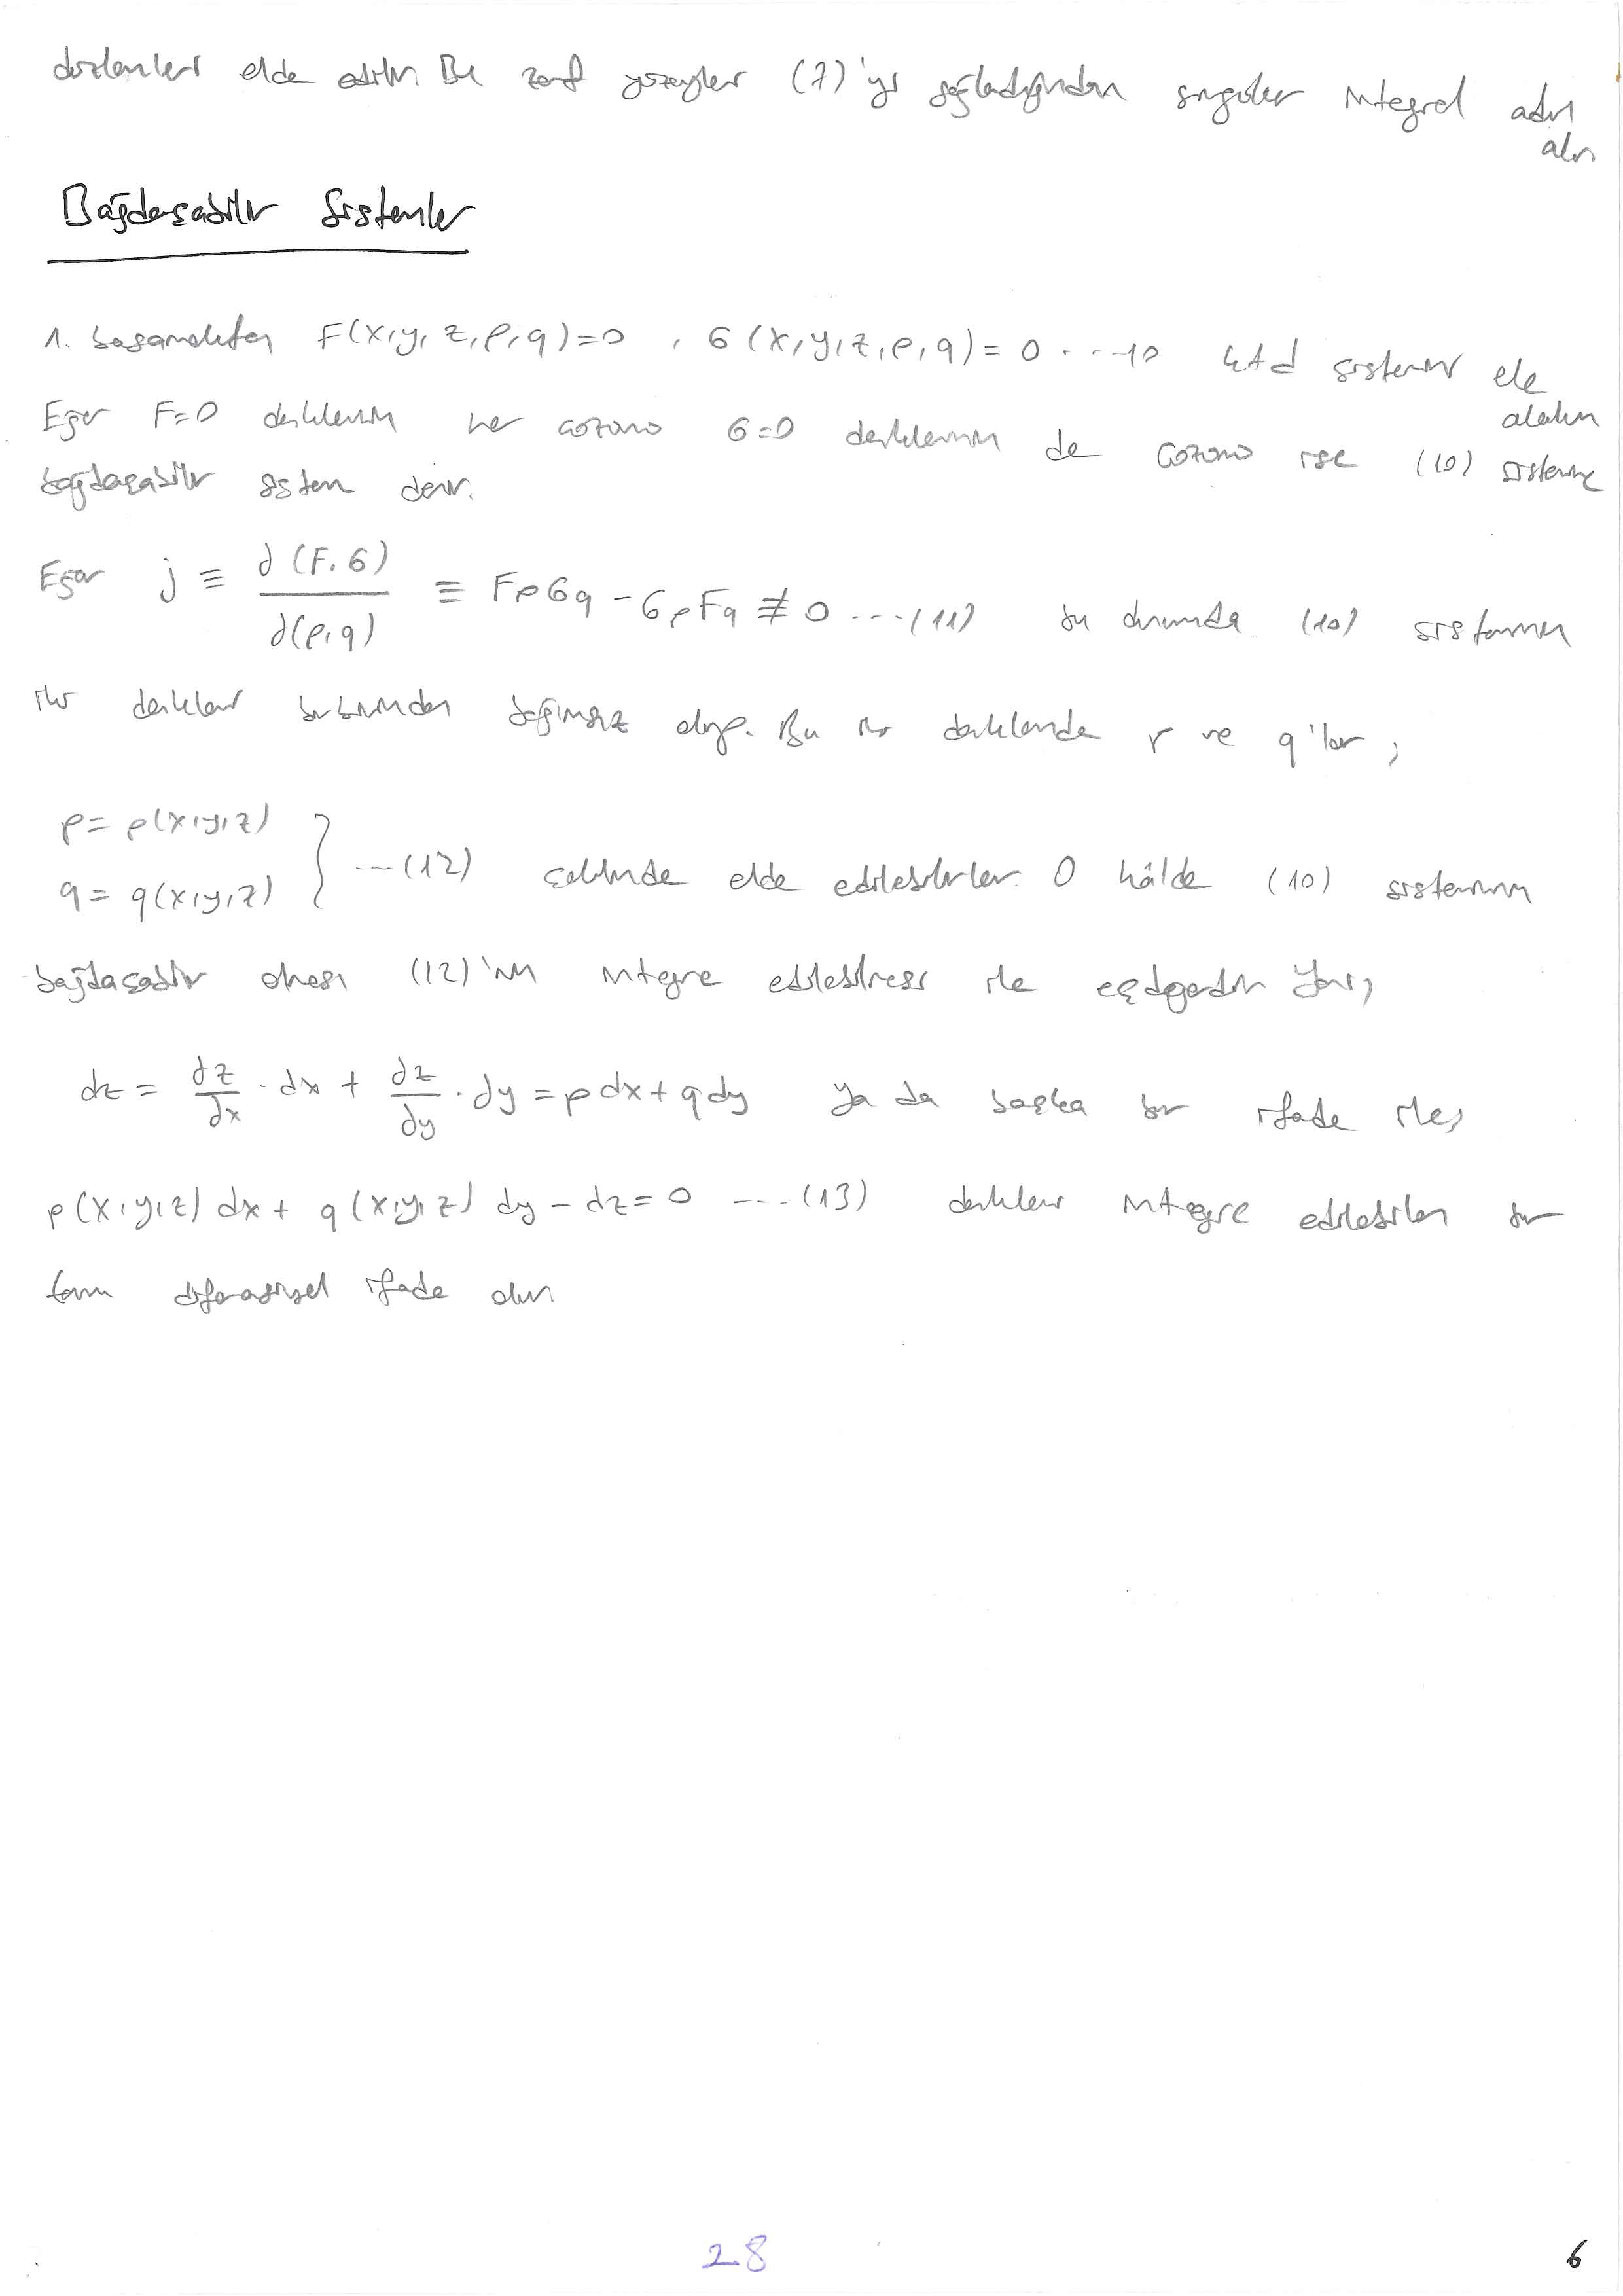 düzlemleri elde edilir. Bu zarf yüzeyler (7)'yi sağladığından singüler integral adını
alır
Bağdaşabilir Sistemler
1. basamaktan F(x,y,z,p,q)=0 , G(x,y,z,p,q)=0 ...10 kdd sistemini ele
alalım
Eğer F=0 denklemin her çözümü G=0 denkleminin de çözümü ise (10) sistemine
bağdaşabilir sistem denir.
Eğer j ≡ ∂(F,G)/∂(p,q) ≡ FpGq - GpFq ≢ 0 ...(11) bu durumda (10) sisteminin
iki denklemi birbirinden bağımsız olup. Bu iki denklemde p ve q'lar,
p = p(x,y,z)
q = q(x,y,z) } ...(12) şeklinde elde edilebilirler. O hâlde (10) sisteminin
bağdaşabilir olması (12)'nin integre edilebilmesi ile eşdeğerdir. Yani,
dz = ∂z/∂x . dx + ∂z/∂y . dy = pdx + qdy ya da başka bir ifade ile,
p(x,y,z) dx + q(x,y,z) dy - dz = 0 ...(13) denklemi integre edilebilen bir
tam diferansiyel ifade olur
28
6